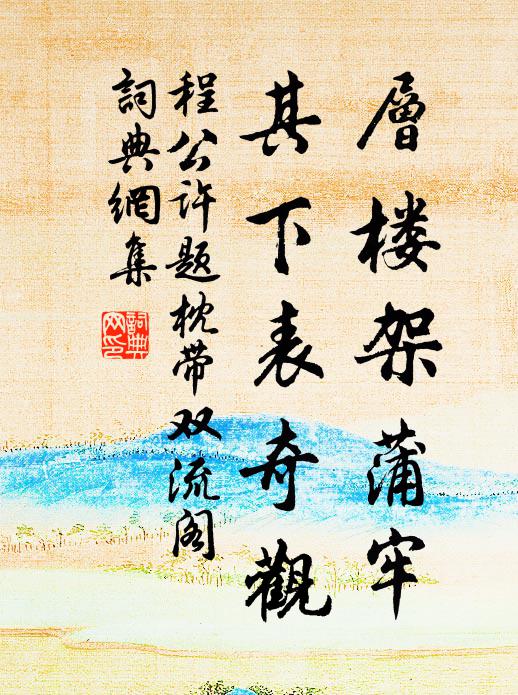 層楼架蒲牢
其下表奇觀
程公许题枕带双流阁
詞典網集
詞典網印